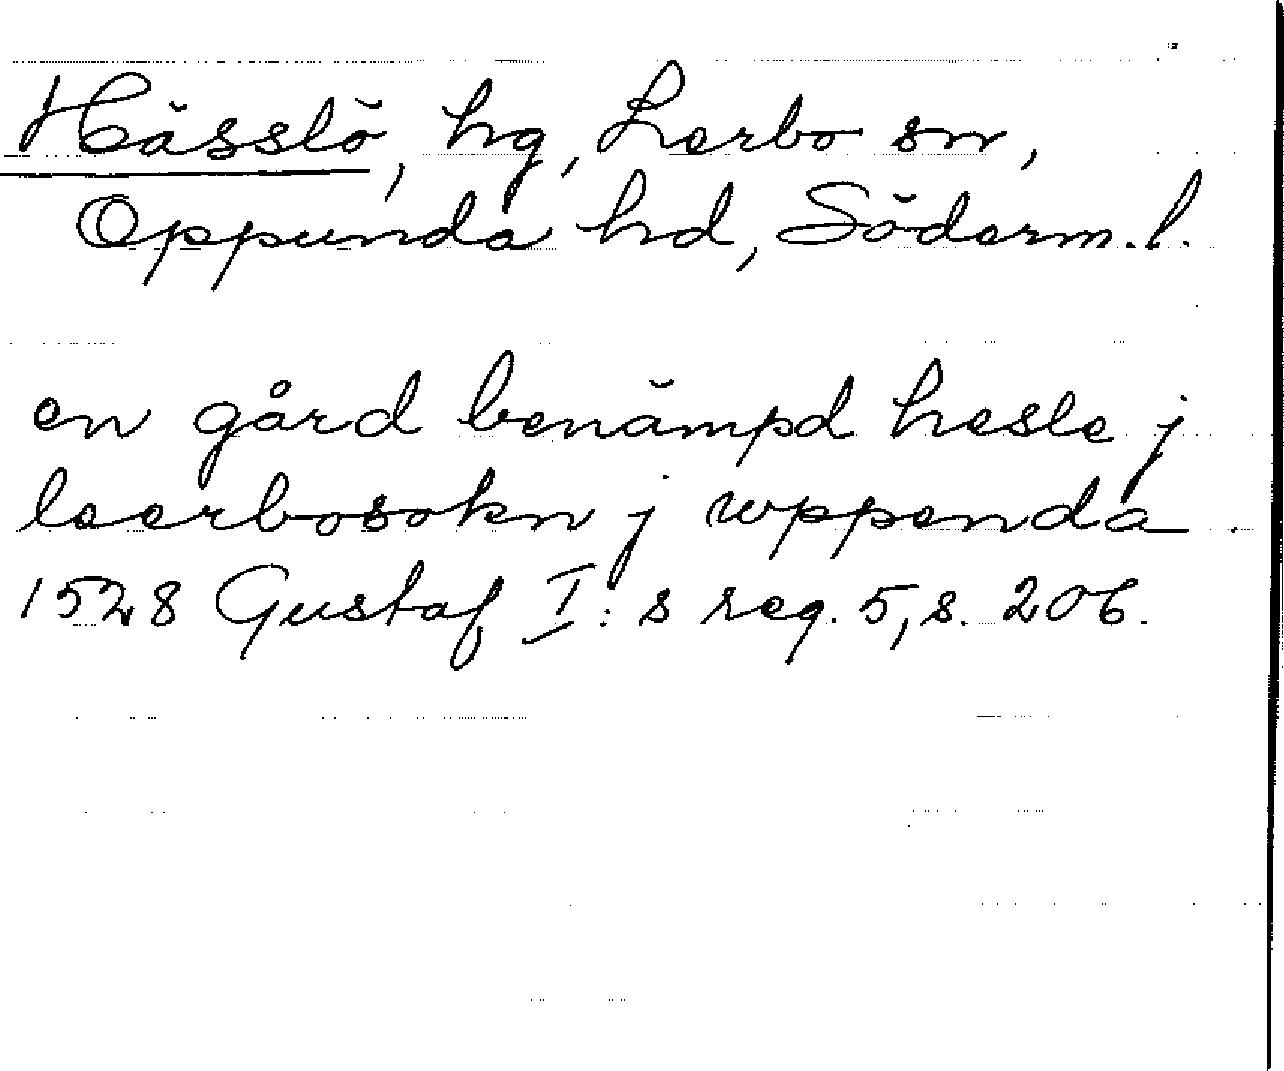 Hässlö, hg, Lerbo sn,
Oppunda hd, Söderm. l.
en gård benämpd hesle j
leerbosokn j wppenda
1528 Gustaf I:s reg. 5, s. 206.